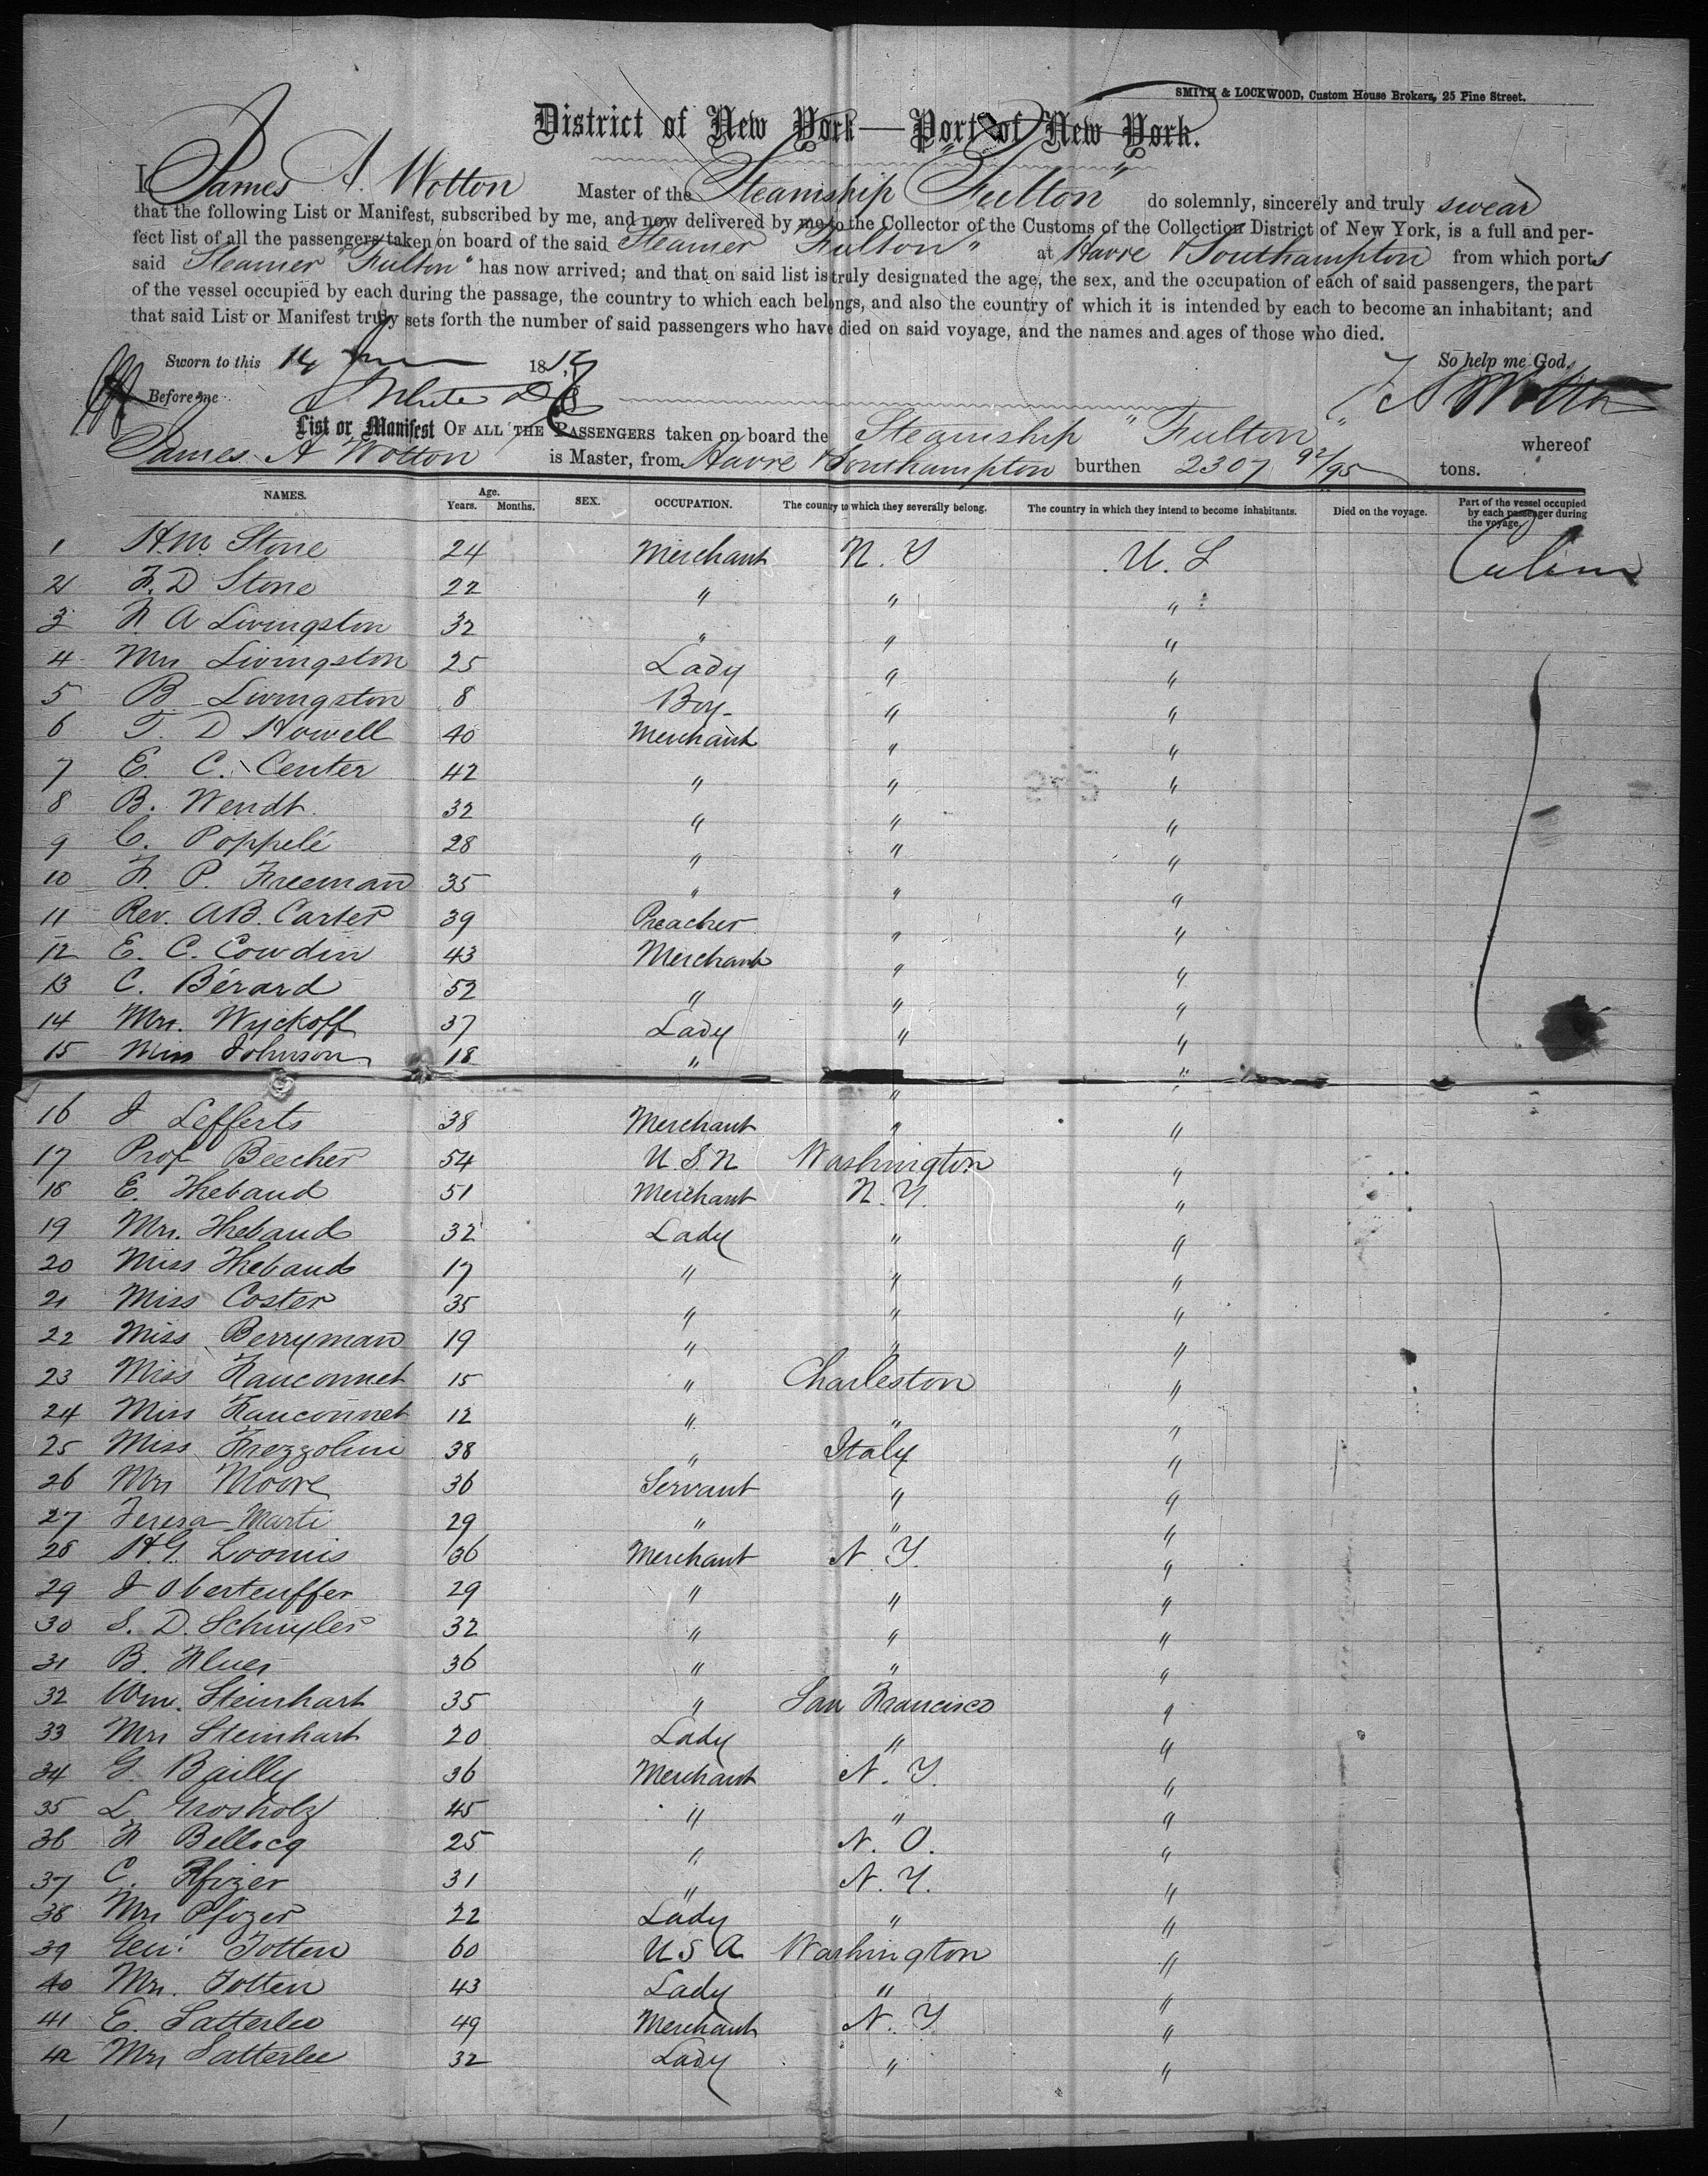 SMITH & LOCKWOOD, Custom House Brokers, 25 Pine Street.
District of New York—Port of New York.
I James A. Wotton Master of the Steamship "Fulton" do solemnly, sincerely and truly swear
that the following List or Manifest, subscribed by me, and now delivered by me to the Collector of the Customs of the Collection District of New York, is a full and per-
fect list of all the passengers taken on board of the said Steamer "Fulton" at Havre & Southampton from which ports
said Steamer "Fulton" has now arrived; and that on said list is truly designated the age, the sex, and the occupation of each of said passengers, the part
of the vessel occupied by each during the passage, the country to which each belongs, and also the country of which it is intended by each to become an inhabitant; and
that said List or Manifest truly sets forth the number of said passengers who have died on said voyage, and the names and ages of those who died.
Sworn to this 14 18 So help me God.
Before me J A Wotton
List or Manifest OF ALL THE PASSENGERS taken on board the Steamship "Fulton" whereof
James A Wotton is Master, from Havre & Southampton burthen 2307 92/95 tons.
NAMES. Age. Years. Months. SEX. OCCUPATION. The country to which they severally belong. The country in which they intend to become inhabitants. Died on the voyage. Part of the vessel occupied by each passenger during the voyage.
1 H.M. Stone 24 Merchant N. Y U. S Cabin
2 F. D Stone 22 " " "
3 F. A Livingston 32 " " "
4 Mrs Livingston 25 Lady " "
5 B. Livingston 8 Boy " "
6 T. D Howell 40 Merchant " "
7 E. C. Center 42 " " "
8 B. Wendt. 32 " " "
9 C. Poppelé 28 " " "
10 F. P. Freeman 35 " " "
11 Rev. A.B. Carter 39 Preacher " "
12 E. C. Cowdin 43 Merchant " "
13 C. Bérard 52 " " "
14 Mrs. Wyckoff 37 Lady " "
15 Miss Johnson 18 " " "
16 J Lefferts 38 Merchant " "
17 Prof Beecher 54 U.S.N Washington "
18 E. Thebaud 51 Merchant N. Y. "
19 Mrs. Thebaud 32 Lady " "
20 Miss Thebaud 17 " " "
21 Miss Coster 35 " " "
22 Miss Berryman 19 " " "
23 Miss Fauconnet 15 " Charleston "
24 Miss Fauconnet 12 " " "
25 Miss Frezzolini 38 " Italy "
26 Mrs Moore 36 Servant " "
27 Teresa Marti 29 " " "
28 H.G. Loomis 36 Merchant N. Y. "
29 J Oberteuffer 29 " " "
30 S. D. Schuyler 32 " " "
31 B. 36 " " "
32 Wm. Steinhart 35 " San Francisco "
33 Mrs Steinhart 20 Lady " "
34 G. Bailly 36 Merchant N. Y. "
35 L. Grosholz 45 " " "
36 F Bellocq 25 " N. O. "
37 C. Pfizer 31 " N. Y. "
38 Mrs Pfizer 22 Lady " "
39 Genl. Totten 60 U S A Washington "
40 Mrs. Totten 43 Lady " "
41 E. Satterlee 49 Merchant N. Y. "
42 Mrs Satterlee 32 Lady " "